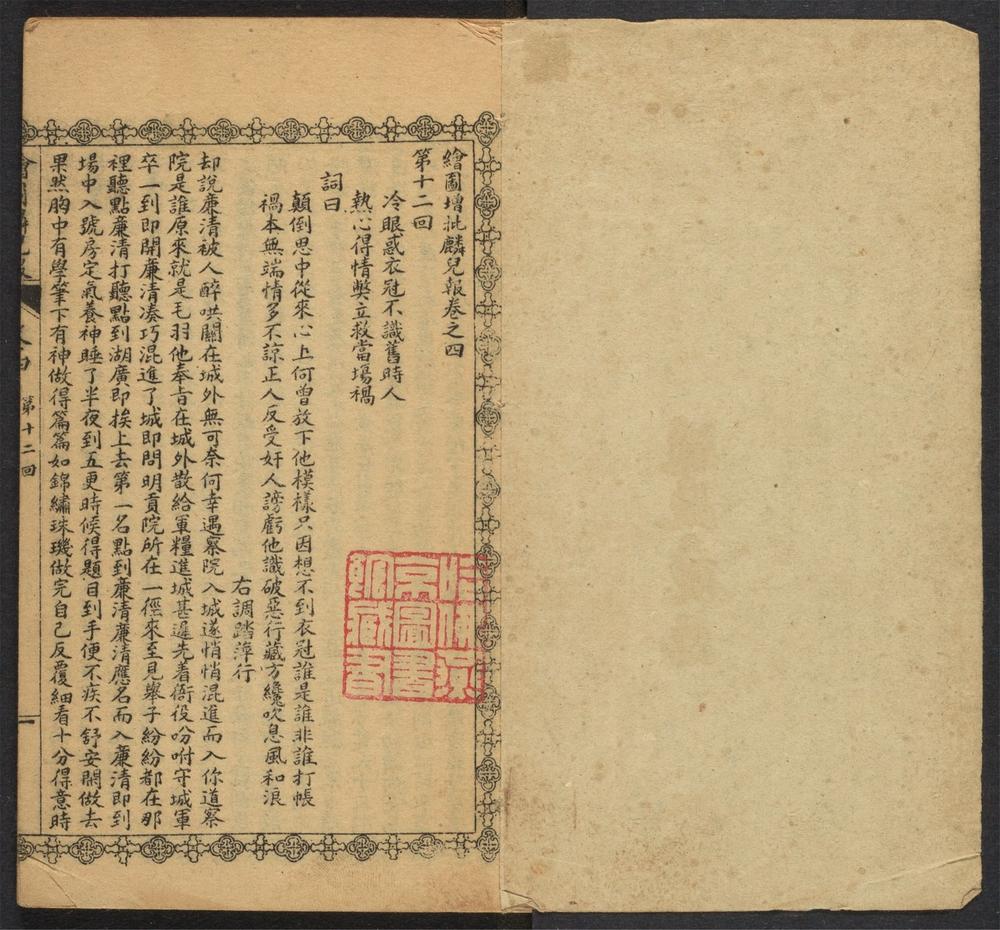 繪圖增批麟兒報卷之四
第十二回
冷眼惑衣冠不識舊時人
熱心得情獘立救當塲禍
詞曰
顛倒思中從來心上何曾放下他模樣只因想不到衣冠誰是誰非誰打帳
禍本無端情多不諒正人反受奸人謗虧他識破惡行藏方纔吹息風和浪
右調踏莎行
却說廉清被人醉哄關在城外無可奈何幸遇察院入城遂悄悄混進而入你道察
院是誰原來就是毛羽他奉旨在城外散給軍糧進城甚遲先着衙役吩咐守城軍
卒一到即開廉清凑巧混進了城即問明貢院所在一徑來至見舉子紛紛都在那
裡聽點廉清打聽點到湖廣即挨上去第一名點到廉清廉清應名而入廉清即到
場中入號房定氣養神睡了半夜到五更時候得題目到手便不疾不舒安閒做去
果然胸中有學筆下有神做得篇篇如錦繡珠璣做完自己反覆細看十分得意時
第十二回
一